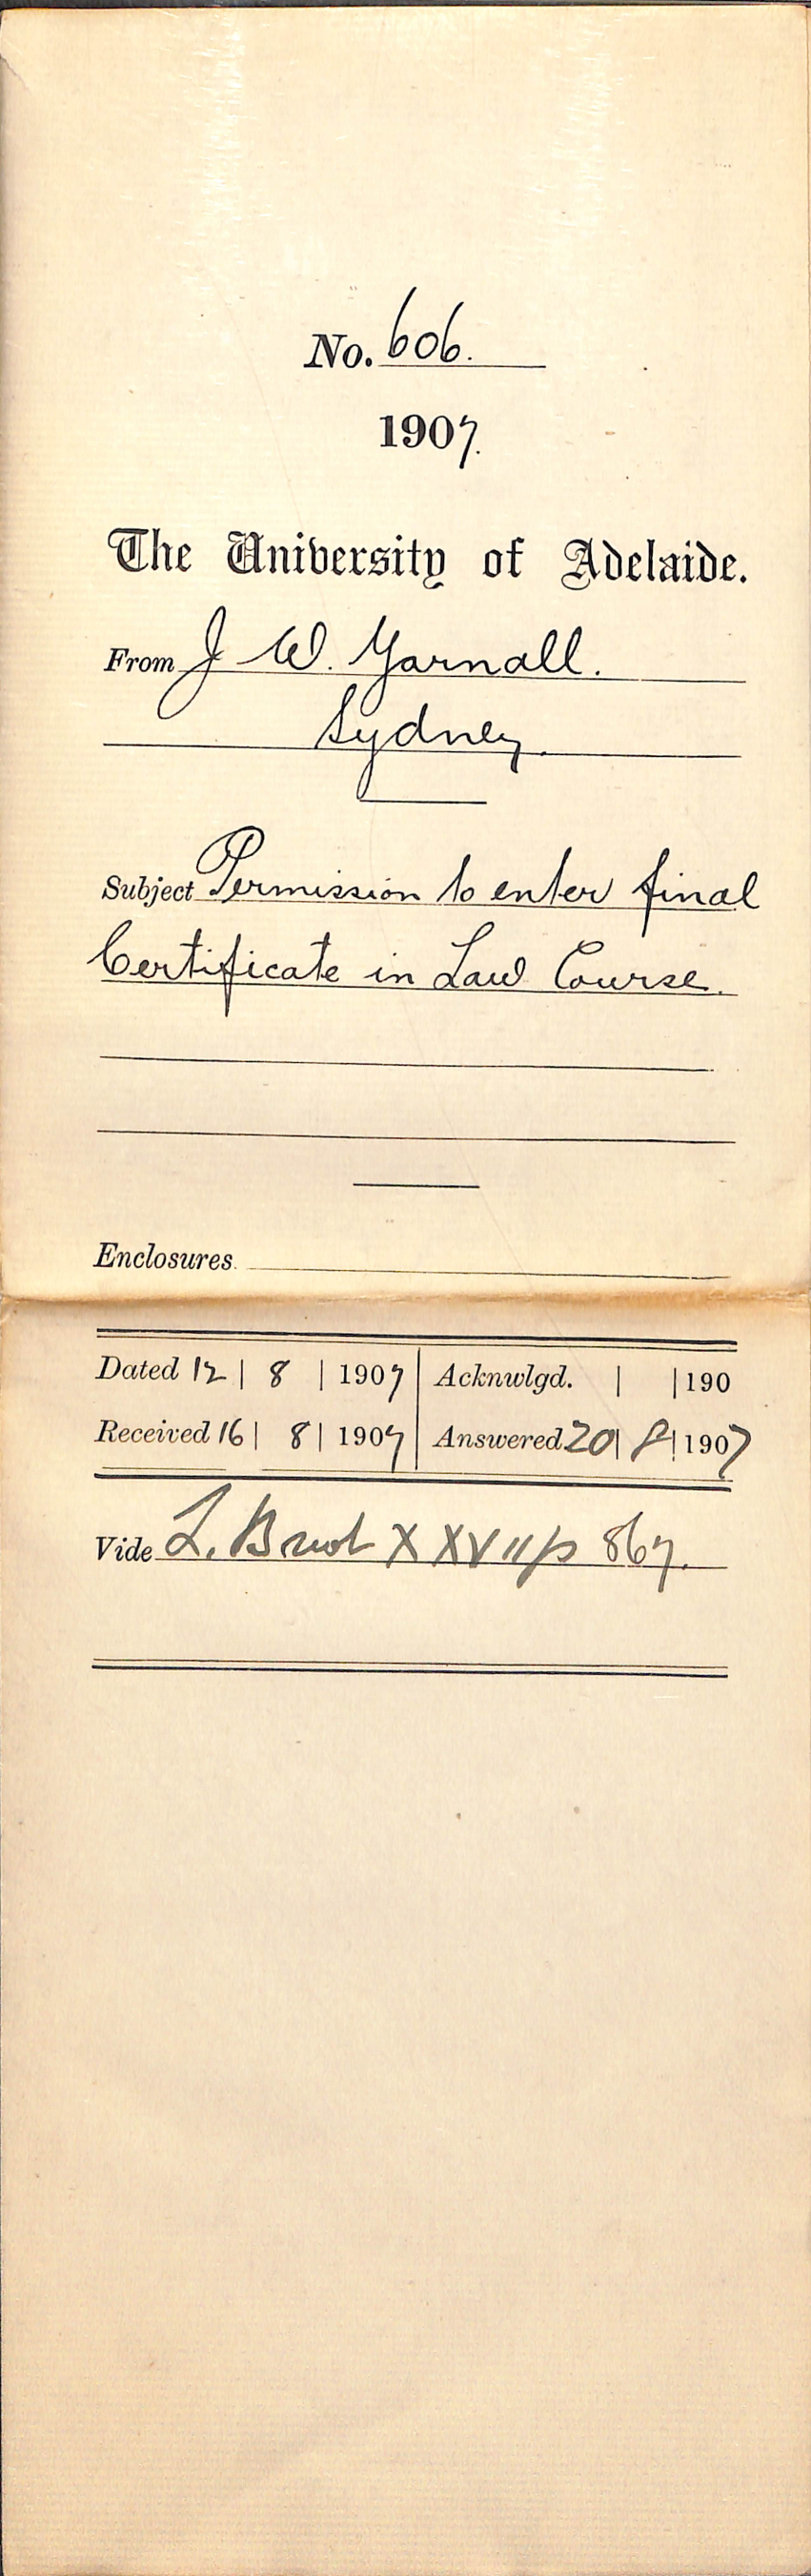 No. 606.
1907.
The University of Adelaide.
From J W. Yarnall.
Sydney.
Subject Permission to enter final
Certificate in Law Course.
Enclosures.
Dated 12 | 8 | 1907 | Acknwlgd. | | 190
Received 16 | 8 | 1907 | Answered 20 | 8 | 1907
Vide L. B XXVII p 867.